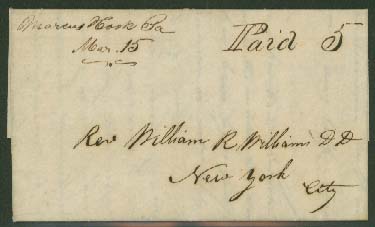 Marcus Hook Pa
Mar. 15
Paid 5
Rev William R Williams D D
New York
City